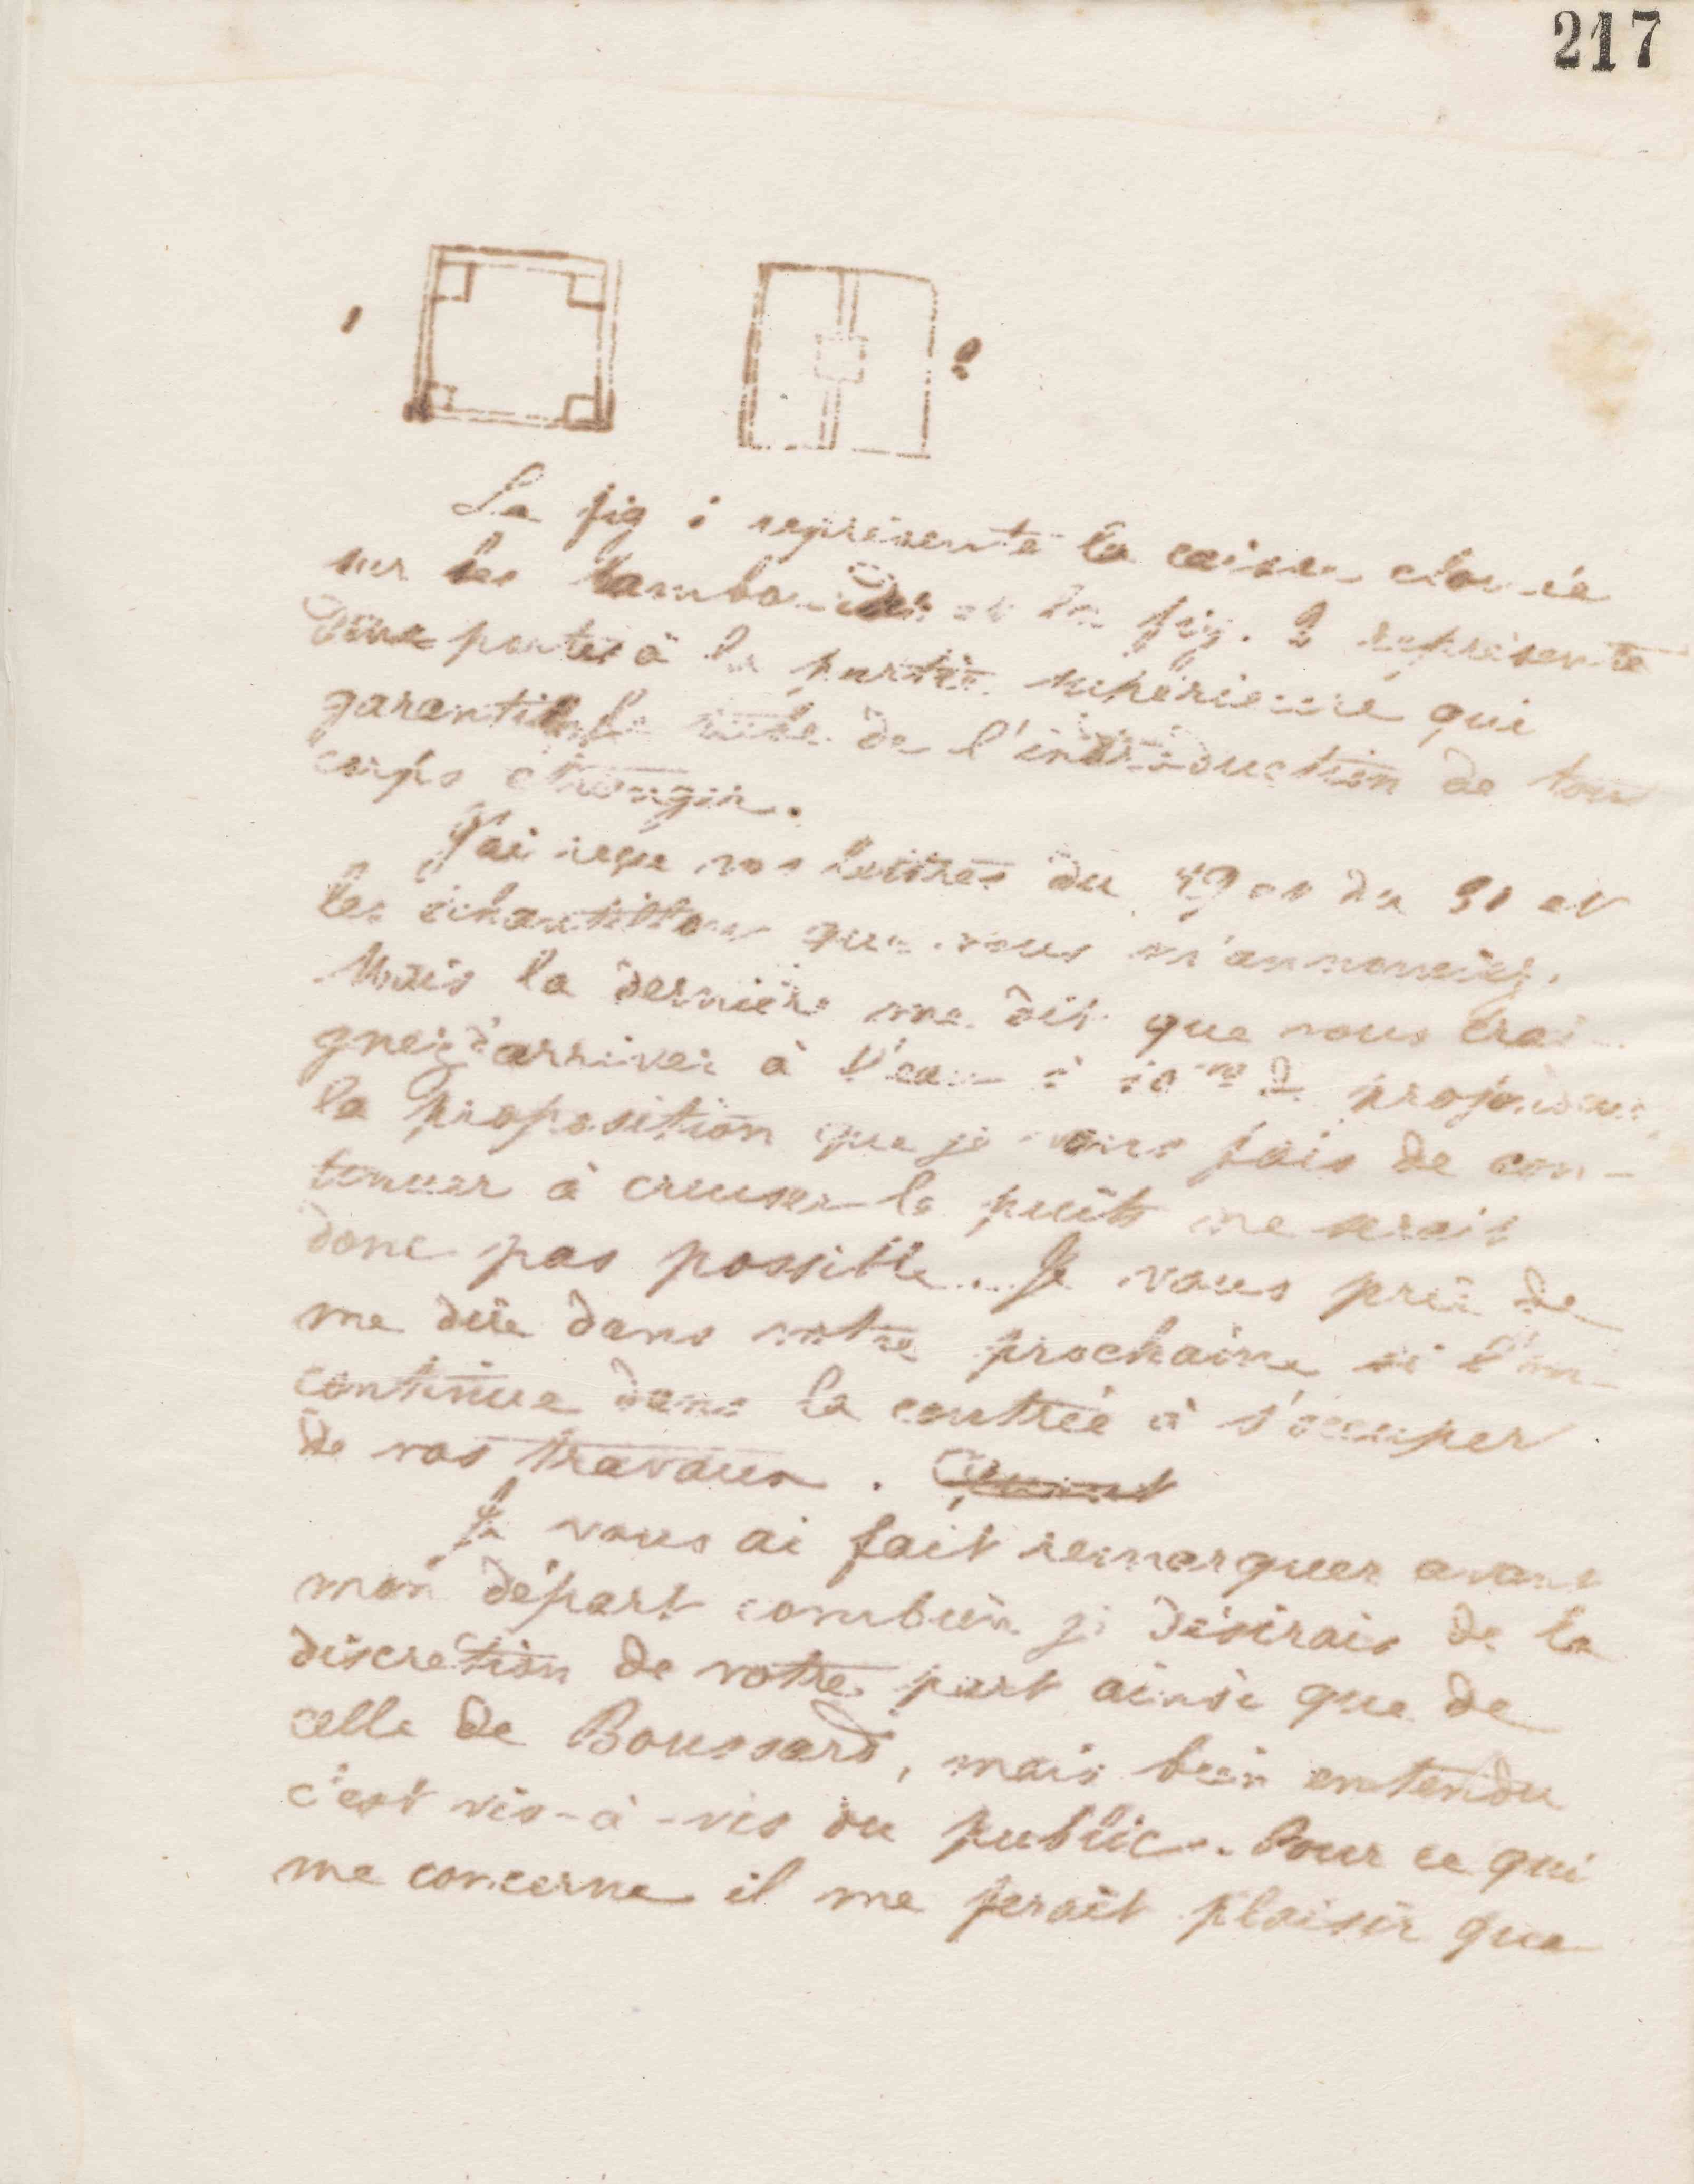 217
1
2
La fig 1 représente la caisse clouée
sur les et la fig. 2 représente
porte à la partie supérieure qui
garantit le de l'introduction de tout
corps étranger.
J'ai reçu vos lettres du 19 et du 31 et
les échantillons que vous m'annonciez.
Mais la dernière me dit que vous crai-
gnez d'arriver à l'eau à 10 m de profondeur,
la proposition que je vous fais de con-
tinuer à creuser le puits ne serait
donc pas possible. Je vous prie de
me dire dans votre prochaine si l'on
continue dans la contrée à s'occuper
de vos travaux. Quant
Je vous ai fait remarquer avant
mon départ combien je désirais de la
discrétion de votre part ainsi que de
celle de Boussard, mais bien entendu
c'est vis-à-vis du public. Pour ce qui
me concerne il me ferait plaisir que